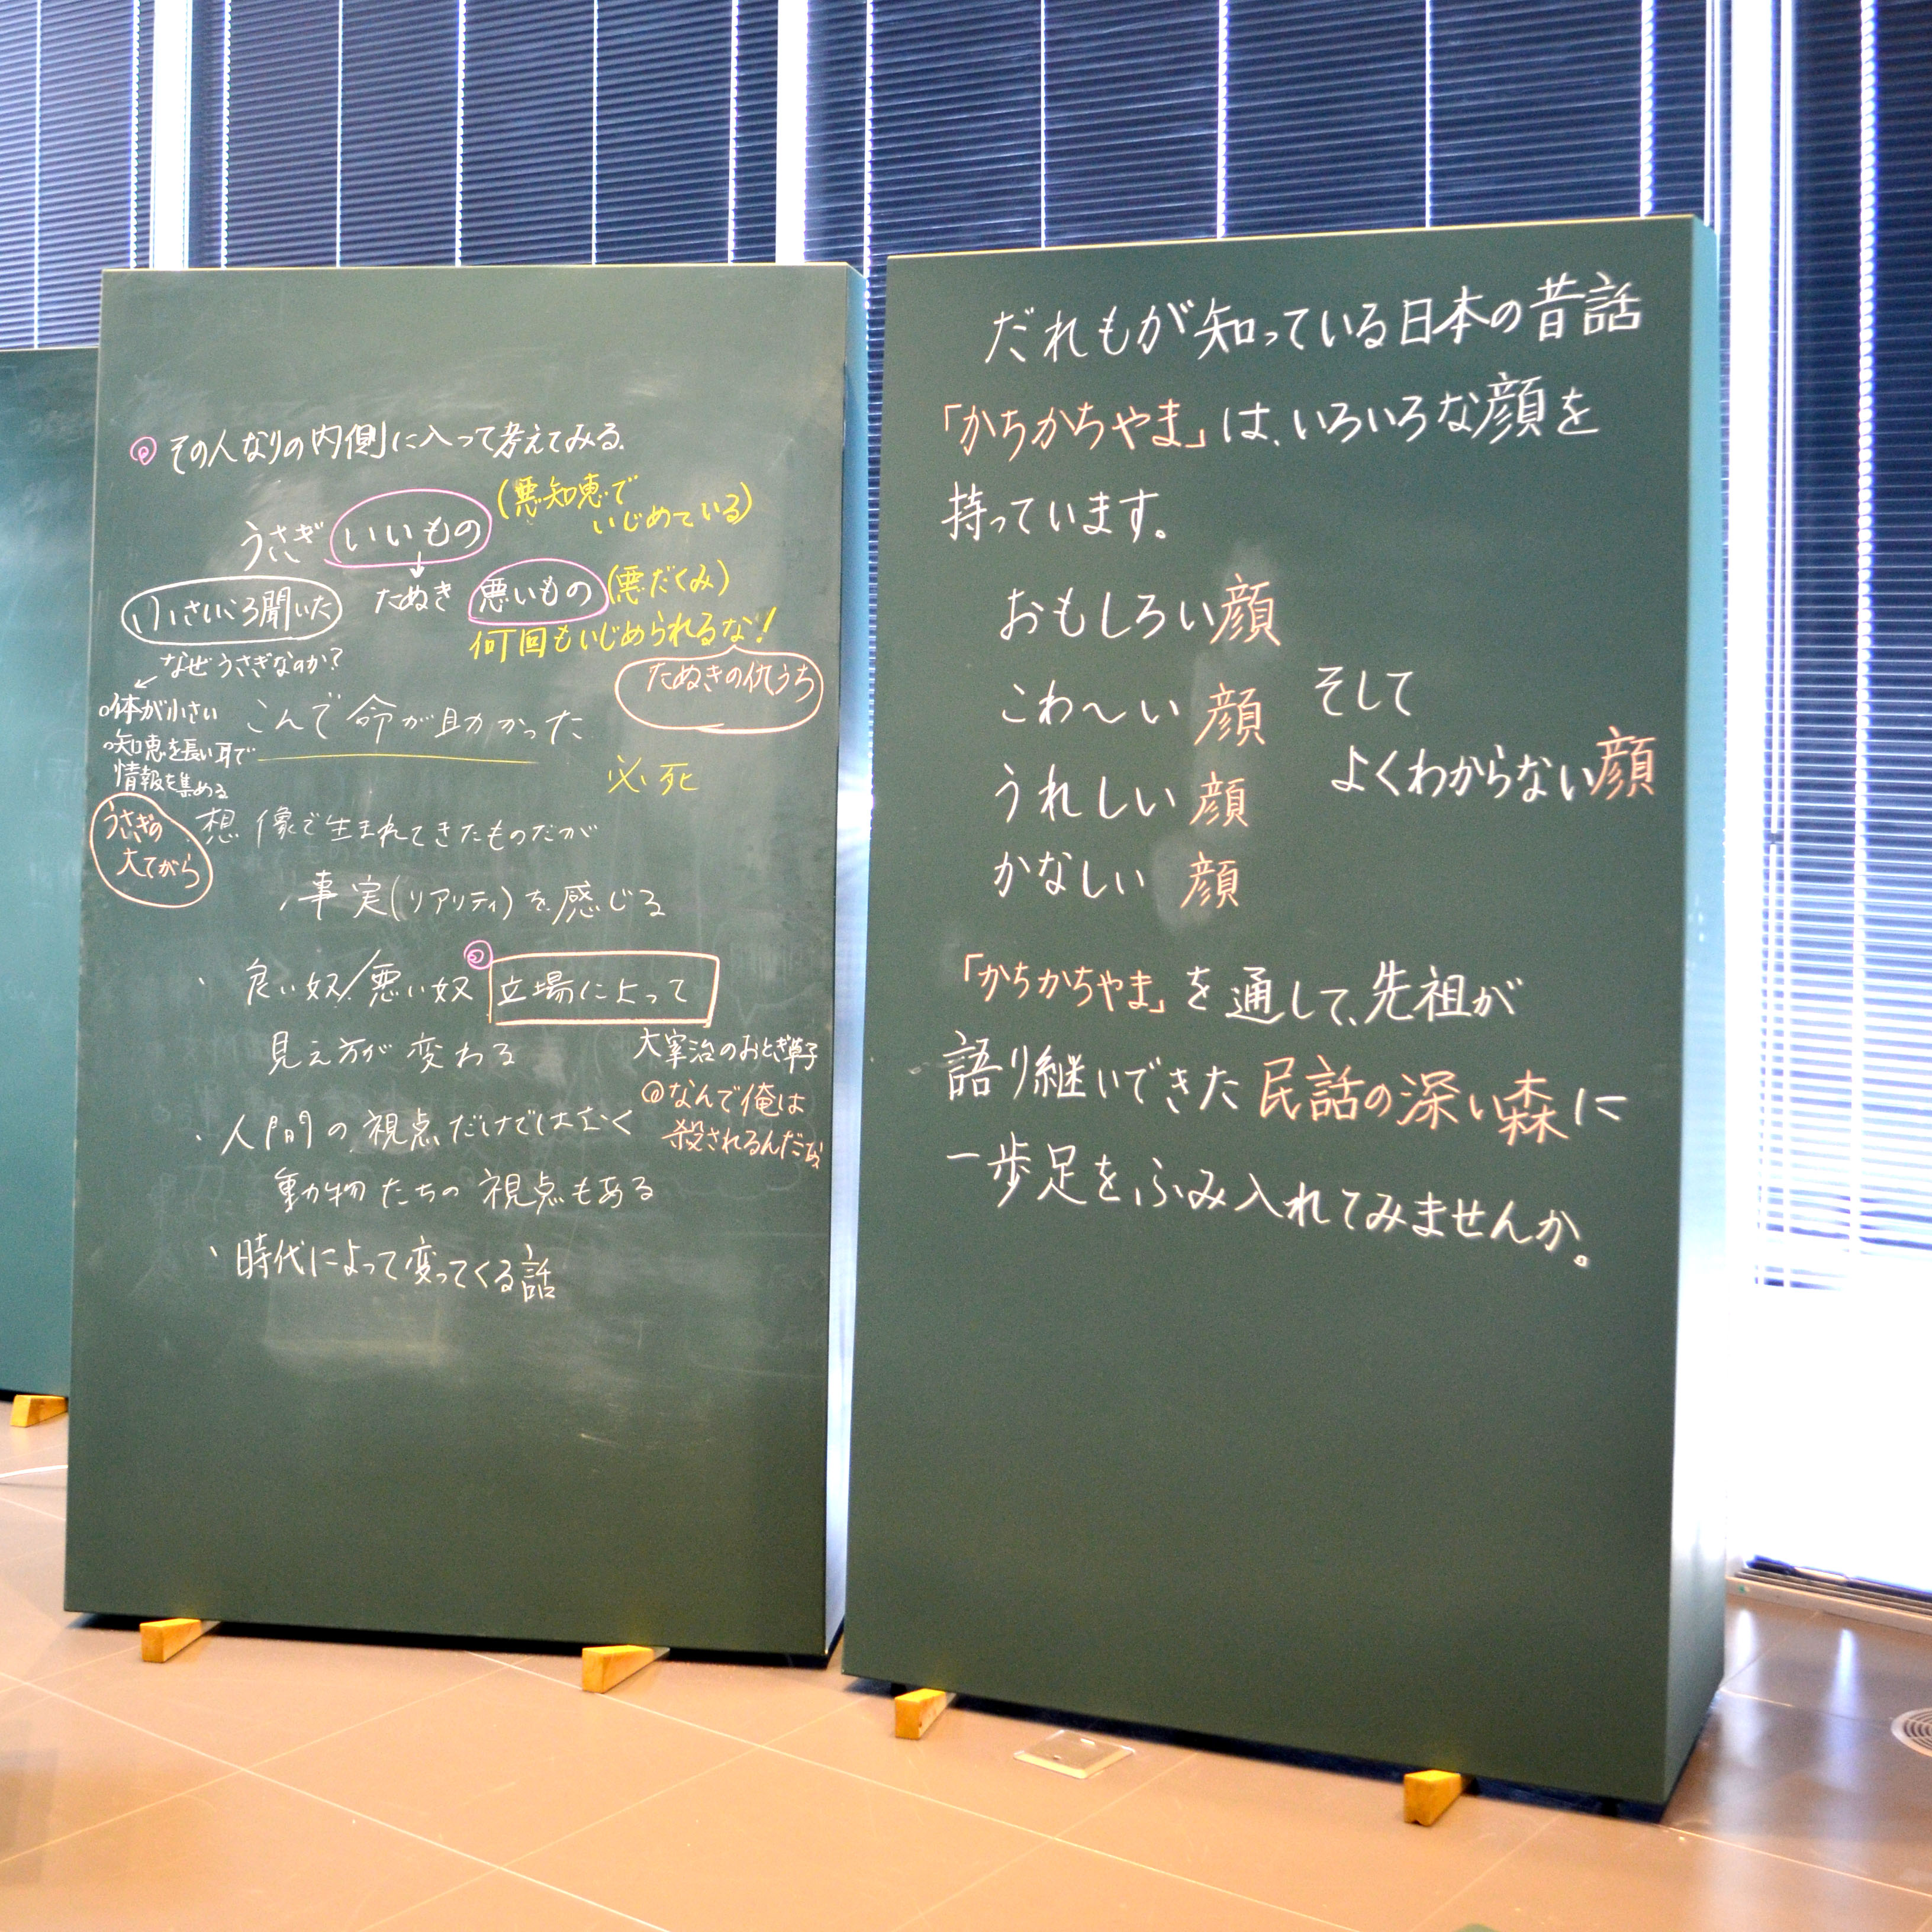 ◎その人なりの内側に入って考えてみる。
(悪知恵で
いじめている)
うさぎ いいもの
↓
たぬき 悪いもの (悪だくみ)
小さいころ聞いた
何回もいじめられるな!
たぬきの仇うち
なぜうさぎなのか?
○体が小さい
○知恵を長い耳で
情報を集める
うさぎの
大てがら
こんで命が助かった
必死
想像で生まれてきたものだが
事実(リアリティ)を感じる
・良い奴/悪い奴 ◎立場によって
見え方が変わる
太宰治のおとぎ草子
◎なんで俺は
殺されるんだな
・人間の視点だけではなく
動物たちの視点もある
・時代によって変ってくる話
だれもが知っている日本の昔話
「かちかちやま」は、いろいろな顔を
持っています。
おもしろい顔
こわ〜い顔
うれしい顔
かなしい顔
そして
よくわからない顔
「かちかちやま」を通して、先祖が
語り継いできた民話の深い森に
一歩足をふみ入れてみませんか。